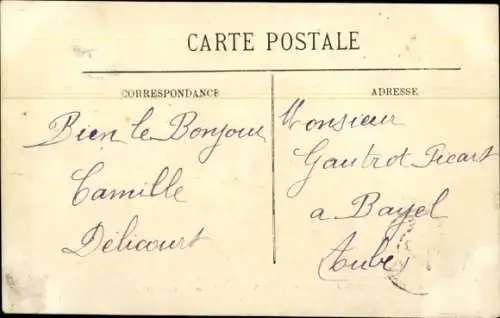 CARTE POSTALE
CORRESPONDANCE
Bien le Bonjour
Camille
Délicourt
ADRESSE
Monsieur
Gautrot Picart
a Bayel
Aube